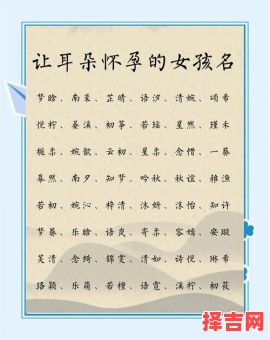 让耳朵怀孕的女孩名
梦晗、南莱、芷晴、语汐、清婉、颂希
悦柠、晏溪、初筝、若瑶、星然、瑾禾
栀柰、婉歆、云初、星柔、念惜、一藜
慕然、南夕、知梦、吟秋、秋谊、雅渔
若初、婉沁、梓清、沐妍、洛怡、知许
梦藜、乐晗、语岚、寄柔、容嫣、安璇
芙清、念绮、锦雯、清如、诗悦、琳希
珞颖、乐萌、若檀、语霓、溪柠、初筱
择吉网